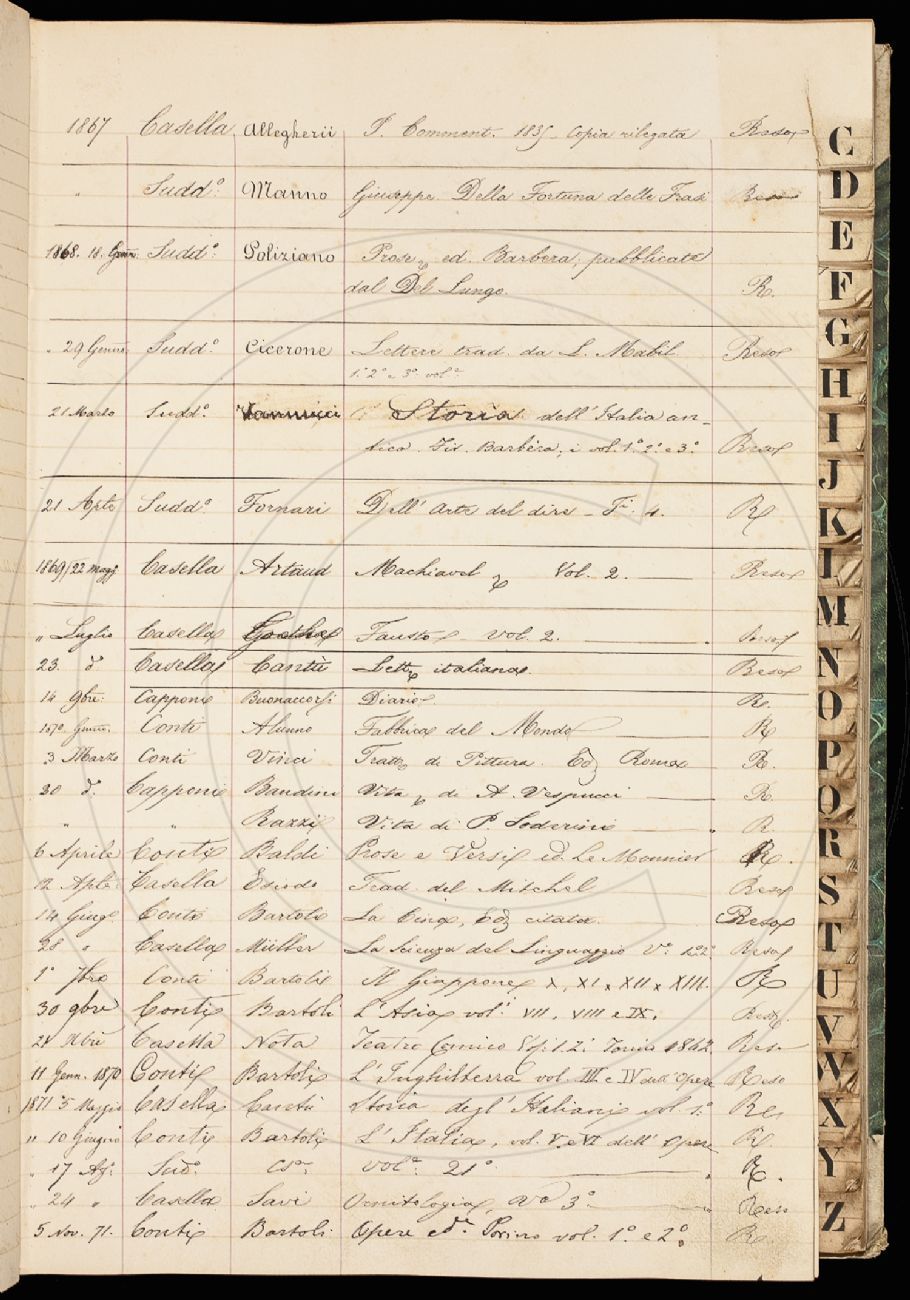 1867 Casella Allegherii P. Comment. 1835 - Copia rilegata Reso
" Sudd.º Manno Giuseppe. Della Fortuna delle Frasi Reso
1868. 18. Genn. Sudd.º Poliziano Prose ed. Barbèra, pubblicate
dal Del Lungo. R.
" 29 Genn. Sudd.º Cicerone Lettere trad. da L. Mabil Reso
1.º 2.º e 3.º vol.
21 Marzo Sudd.º Vannucci Storia dell'Italia an-
tica. Tip. Barbèra, i vol. 1.º 2.º e 3.º Reso
21 Aple Sudd.º Fornari Dell'Arte del dire - T. 4. R
1869/22 magg Casella Artaud Machiavel Vol. 2. Reso
" Luglio Casella Goethe Fausto - vol. 2. Reso
23 d.º Casella Cantù Lett. italiana. Reso
14 9bre Capponi Buonaccorsi Diario R.
1870 Genn. Conti Alunno Fabbrica del Mondo R
3 Marzo Conti Vinci Tratt. di Pittura. Ed Roma R.
30 d.º Capponi Bandini Vita di A. Vespucci R.
" " Razzi Vita di P. Soderini " R
6 Aprile Conti Baldi Prose e Versi ed. Le Monnier R.
12 Aple Casella Esiodo Trad. del Mitchel Reso
14 Giugº Conti Bartoli La Cina, Ed citata. Reso
28 " Casella Müller La Scienza del Linguaggio V. 1.2 Reso
1º 7bre Conti Bartoli Il Giappone X, XI, XII, XIII. R
30 9bre Conti Bartoli L'Asia vol. VII, VIII e IX. Reso.
21 Xbre Casella Nota Teatro Comico T. 1. 2. Torino 1842 Reso
11 Genn. 1870 Conti Bartoli L'Inghilterra vol. III e IV dell'Opere Reso
1871 5 Maggio Casella Cantù Storia degl'Italiani vol. 1.º Res
" 10 Giugno Conti Bartoli L'Italia, vol. V. e VI dell'Opere R.
" 17 Sudº. vol. 21º " R.
" 24 " Casella Savi Ornitologia, 3º Reso
5 Nov. 71. Conti Bartoli Opere ed. Torino vol. 1º. e 2º. R.
C
D
E
F
G
H
I
J
K
L
M
N
O
P
Q
R
S
T
U
V
W
X
Y
Z